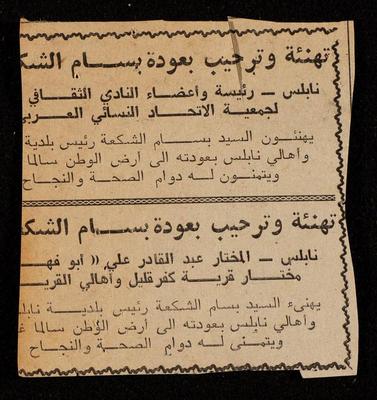 تهنئة وترحيب بعودة بسام الشك
نابلس — رئيسة وأعضاء النادي الثقافي
لجمعية الاتحاد النسائي العرب
يهنئون السيد بسام الشكعة رئيس بلدية
وأهالي نابلس بعودته الى أرض الوطن سالما
ويتمنون له دوام الصحة والنجاح
تهنئة وترحيب بعودة بسام الشك
نابلس — المختار عبد القادر علي « أبو فه
مختار قرية كفر قليل وأهالي القر
يهنىء السيد بسام الشكعة رئيس بلدية نابل
وأهالي نابلس بعودته الى أرض الوطن سالما
ويتمنى له دوام الصحة والنجاح